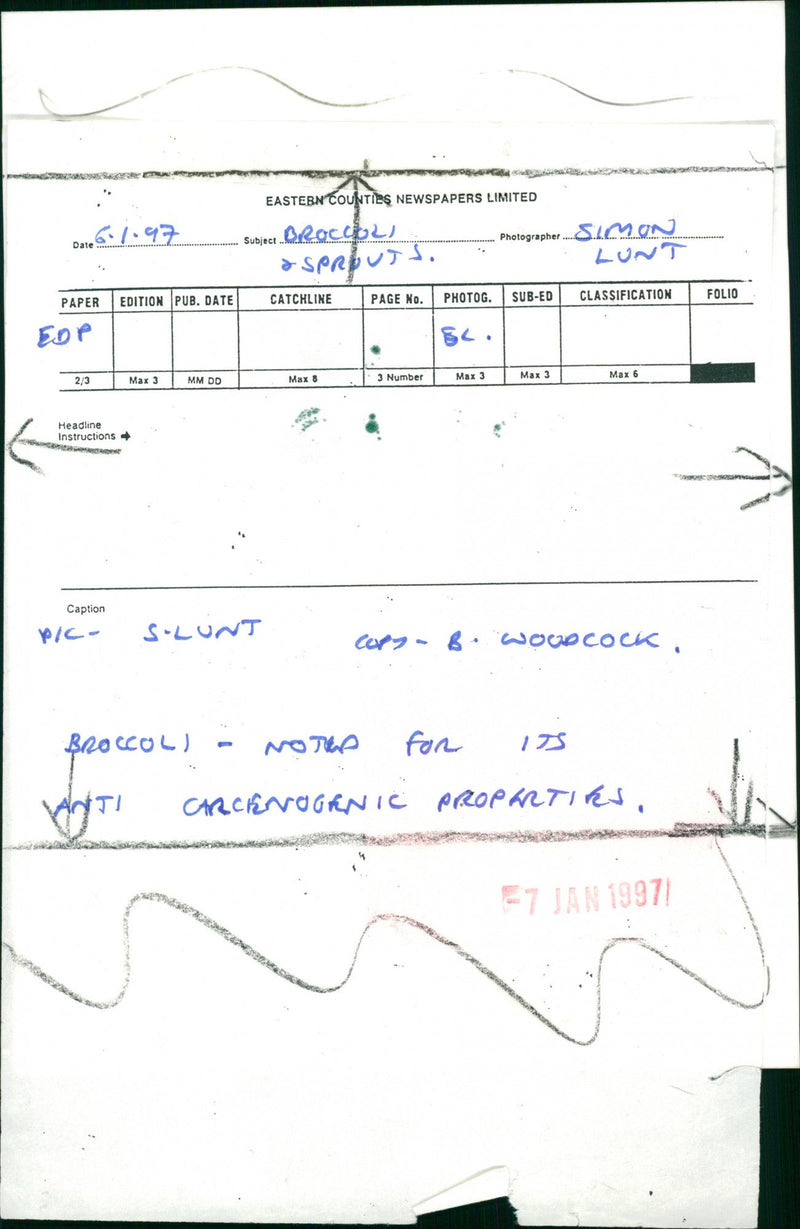 EASTERN COUNTIES NEWSPAPERS LIMITED
Date 6.1.97 Subject BROCCOLI Photographer SIMON
& SPROUTS. LUNT
PAPER EDITION PUB. DATE CATCHLINE PAGE No. PHOTOG. SUB-ED CLASSIFICATION FOLIO
EDP SL.
2/3 Max 3 MM DD Max 8 3 Number Max 3 Max 3 Max 6
Headline
Instructions →
Caption
PIC- S.LUNT COPY - B. WOODCOCK.
BROCCOLI - NOTED FOR ITS
ANTI CARCENOGENIC PROPERTIES.
-7 JAN 1997